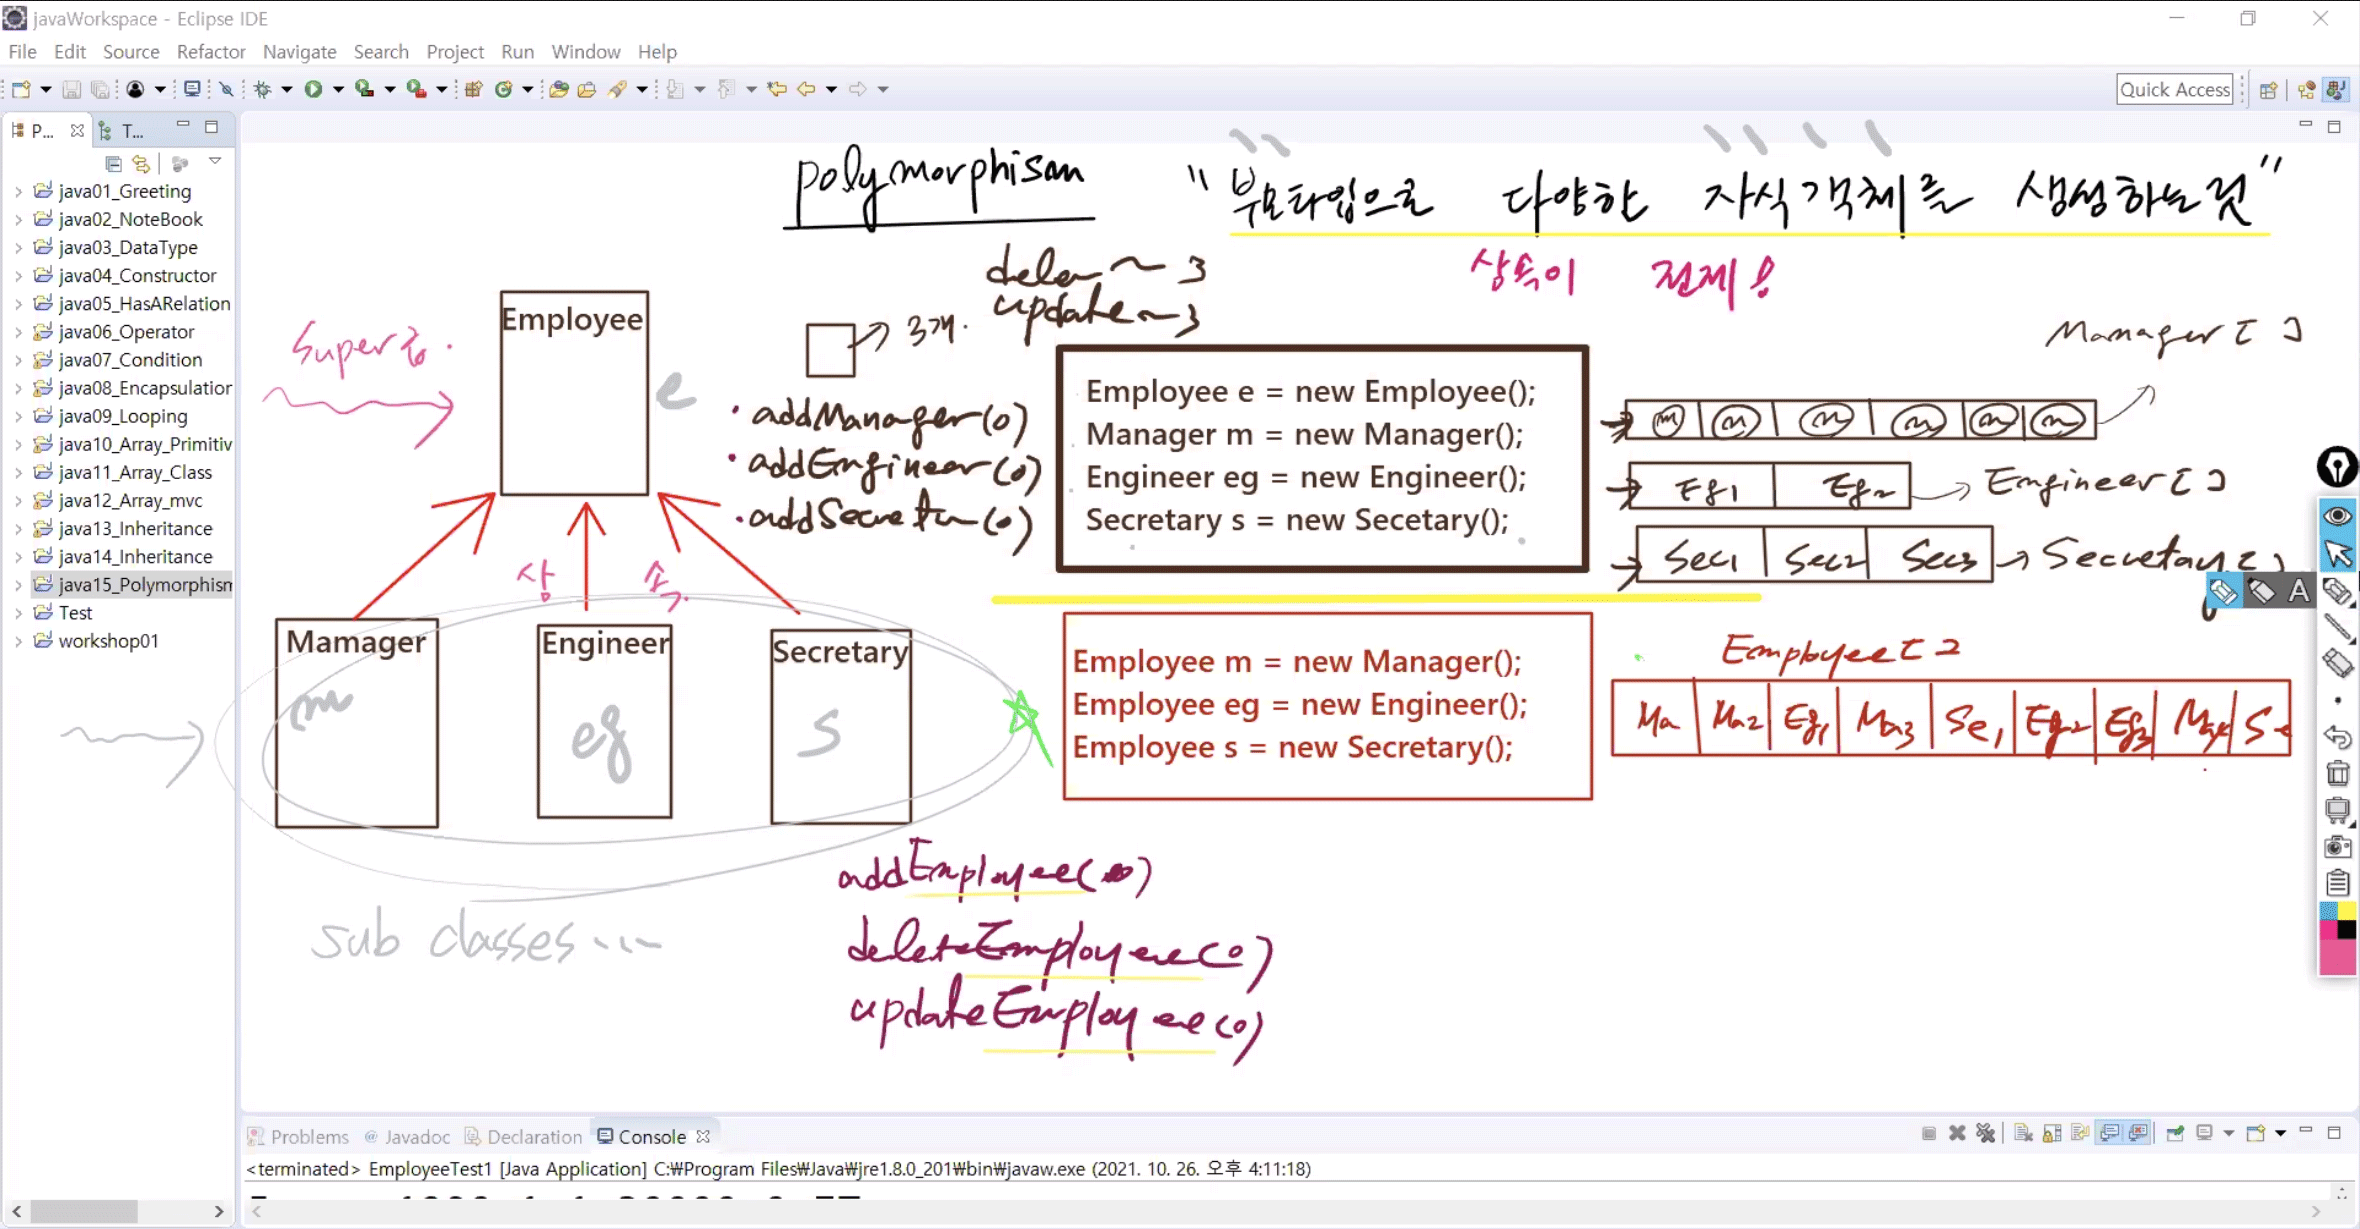 javaWorkspace - Eclipse IDE
File Edit Source Refactor Navigate Search Project Run Window Help
Quick Access
P... T...
java01_Greeting
java02_NoteBook
java03_DataType
java04_Constructor
java05_HasARelation
java06_Operator
java07_Condition
java08_Encapsulation
java09_Looping
java10_Array_Primitiv
java11_Array_Class
java12_Array_mvc
java13_Inheritance
java14_Inheritance
java15_Polymorphism
Test
workshop01
polymorphism "부모타입으로 다양한 자식객체를 생성하는것"
상속이 전제!
~ 3
update ~ 3
3개.
Super
Employee
e
• addManager(o)
• addEngineer(o)
Employee e = new Employee();
Manager m = new Manager();
Engineer eg = new Engineer();
Secretary s = new Secetary();
Manager[ ]
m m m m m m
Eg1 Eg2
Engineer[ ]
Sec1 Sec2 Sec3
Secretary[ ]
상 속.
Mamager
m
Engineer
eg
Secretary
s
sub classes...
Employee m = new Manager();
Employee eg = new Engineer();
Employee s = new Secretary();
Employee[ ]
Ma Ma2 Eg1 Ma3 Se1 Eg2 Eg3 Se
addEmployee(o)
deleteEmployee(o)
updateEmployee(o)
A
Problems Javadoc Declaration Console
<terminated> EmployeeTest1 [Java Application] C:₩Program Files₩Java₩jre1.8.0_201₩bin₩javaw.exe (2021. 10. 26. 오후 4:11:18)